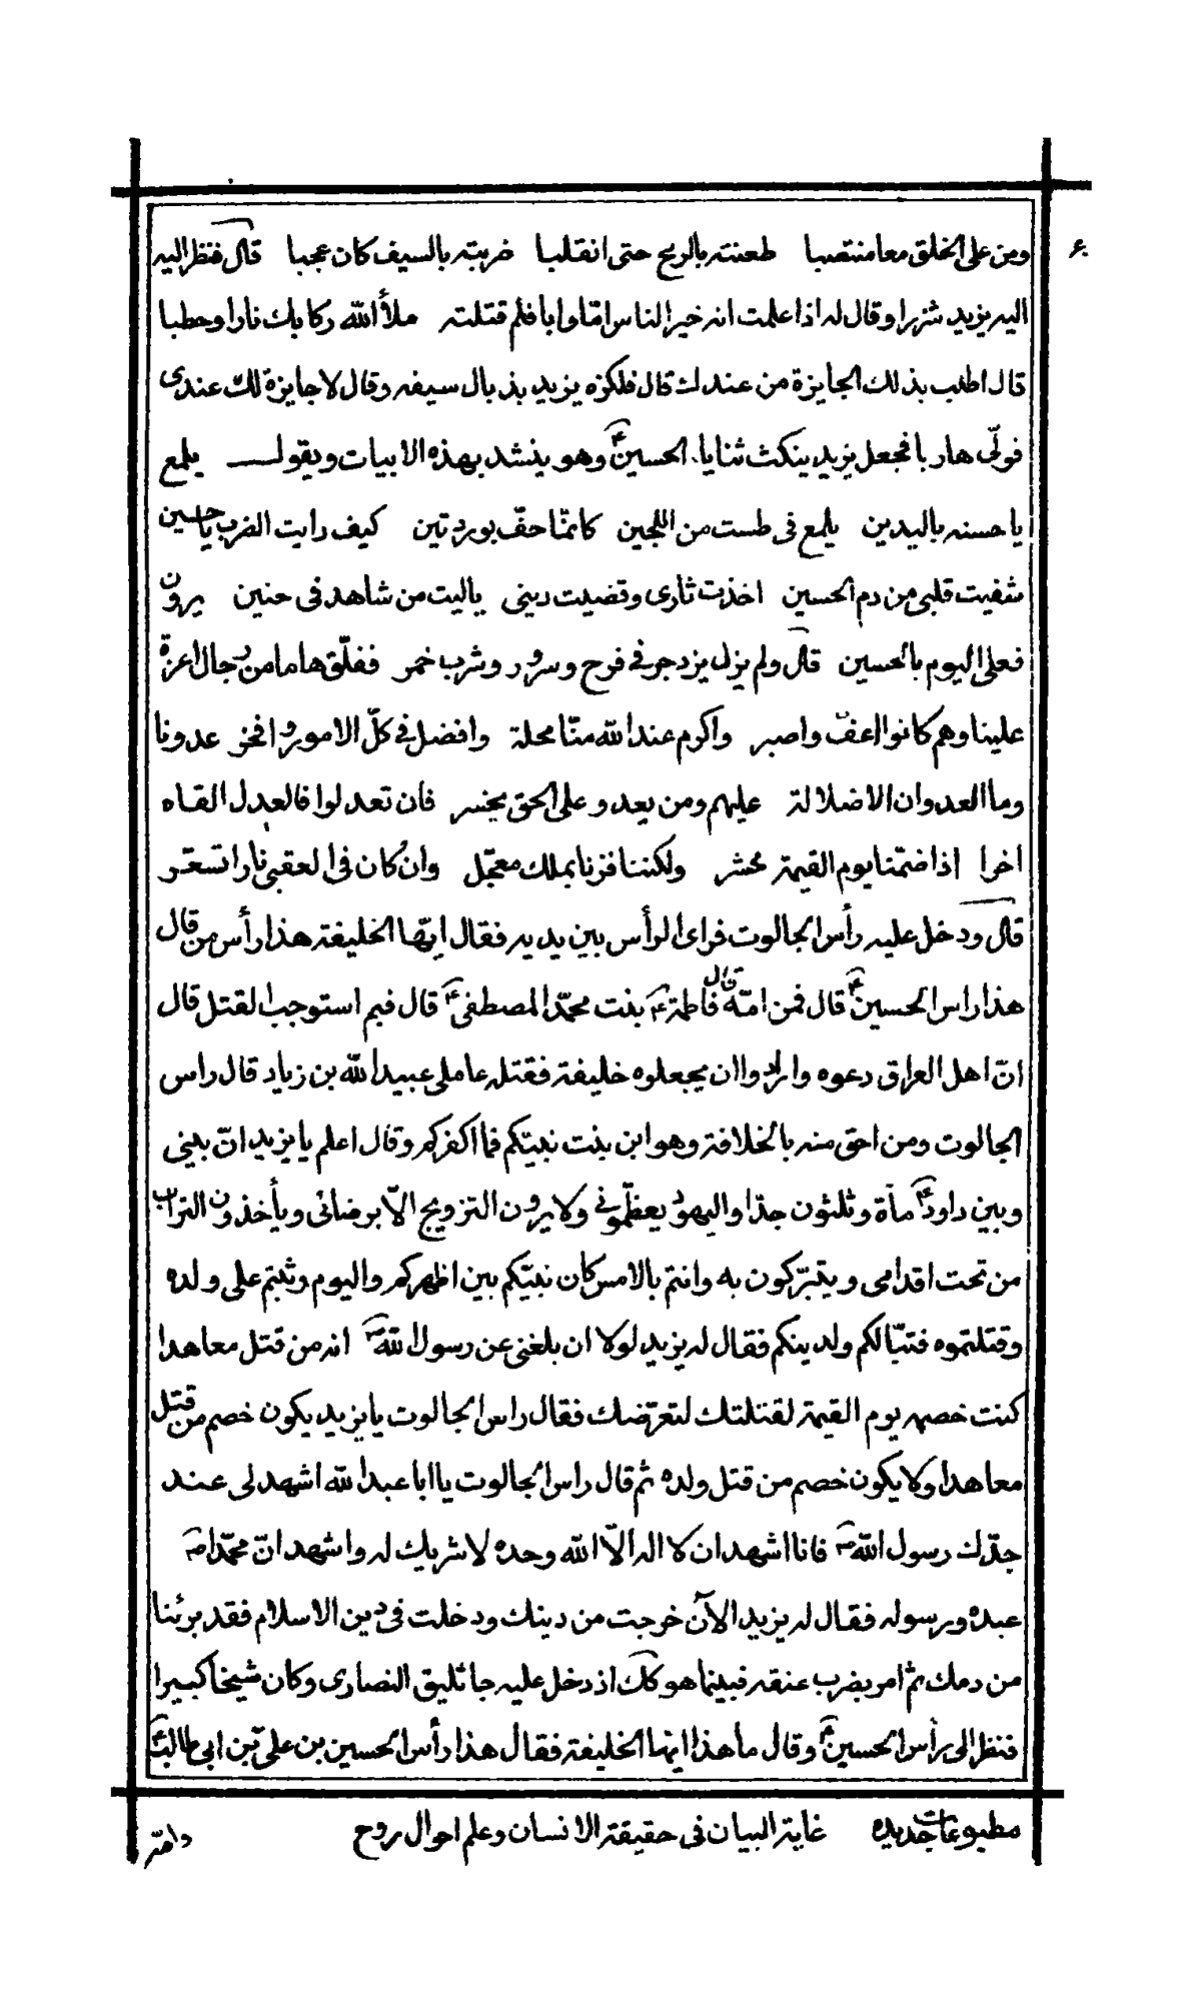 ومن على الخلق معا منتصبا طعنته بالرمح حتى انقلبا ضربته بالسيف كان عجبا قال فنظر اليه
۶۰
اليه يزيد شزرا وقال له اذا علمت انه خير الناس امّا وابا فلم قتلته ملأ الله ركابك نارا وحطبا
قال اطلب بذلك الجايزة من عندك قال فلكزه يزيد بذبال سيفه وقال لا جايزة لك عندى
فولّى هاربا فجعل يزيد ينكث ثنايا الحسينؑ وهو ينشد بهذه الابيات ويقول يلمع
يا حسنه باليدين يلمع فى طست من اللجين كانمّا حفّ بوردتين كيف رايت الضرب يا حسين
شفيت قلبى من دم الحسين اخذت ثارى وقضيت دينى ياليت من شاهد فى حنين يرون
فعلى اليوم بالحسين قال ولم يزل يزد جر فى فرح وسرور وشرب خمر نفلّق هاما من رجال اعزة
علينا وهم كانوا اعف واصبر واكرم عند الله منّا محلة وافضل فى كلّ الامور وافخر عدونا
وما العدوان الا ضلالة عليهم ومن يعدو على الحق يخسر فان تعدلوا فالعدل القاه
اخرا اذا ضمّنا يوم القيمة محشر ولكننا فزنا بملك معجّل وان كان فى العقبى نارا تسعّر
قال ودخل عليه رأس الجالوت فراى الرأس بين يديه فقال ايّها الخليفة هذا رأس من قال
هذا راس الحسينؑ قال فمن امّه قال فاطمةؑ بنت محمّد المصطفىؐ قال فبم استوجب القتل قال
انّ اهل العراق دعوه وارادوا ان يجعلوه خليفة فقتله عاملى عبيد الله بن زياد قال راس
الجالوت ومن احق منه بالخلافة وهو ابن بنت نبيّكم فما اكفركم وقال اعلم يا يزيد انّ بينى
وبين داودؑ مأة وثلثون جدّا واليهود يعظّمونى ولا يرون التزويج الّا برضائى ويأخذون التراب
من تحت اقدامى ويتبرّكون به وانتم بالامس كان نبيّكم بين اظهركم واليوم وثبتم على ولده
وقتلتموه فتبّا لكم ولدينكم فقال له يزيد لولا ان بلغنى عن رسول اللهؐ انه من قتل معاهدا
كنت خصمه يوم القيمة لقتلتك لتعرّضك فقال راس الجالوت يا يزيد يكون خصم من قتل
معاهدا ولا يكون خصم من قتل ولده ثم قال راس الجالوت يا ابا عبد الله اشهد لى عند
جدّك رسول اللهؐ فانا اشهد ان لا اله الّا الله وحده لا شريك له واشهد انّ محمّداؐ
عبده ورسوله فقال له يزيد الآن خرجت من دينك ودخلت فى دين الاسلام فقد برئنا
من دمك ثم امر بضرب عنقه فبينما هو كك اذ دخل عليه جاثليق النصارى وكان شيخا كبيرا
فنظر الى رأس الحسينؑ وقال ما هذا ايها الخليفة فقال هذا رأس الحسين بن علىّ بن ابى طالبؑ
مطبوعات جديده غاية البيان فى حقيقة الانسان وعلم احوال روح
وامّه